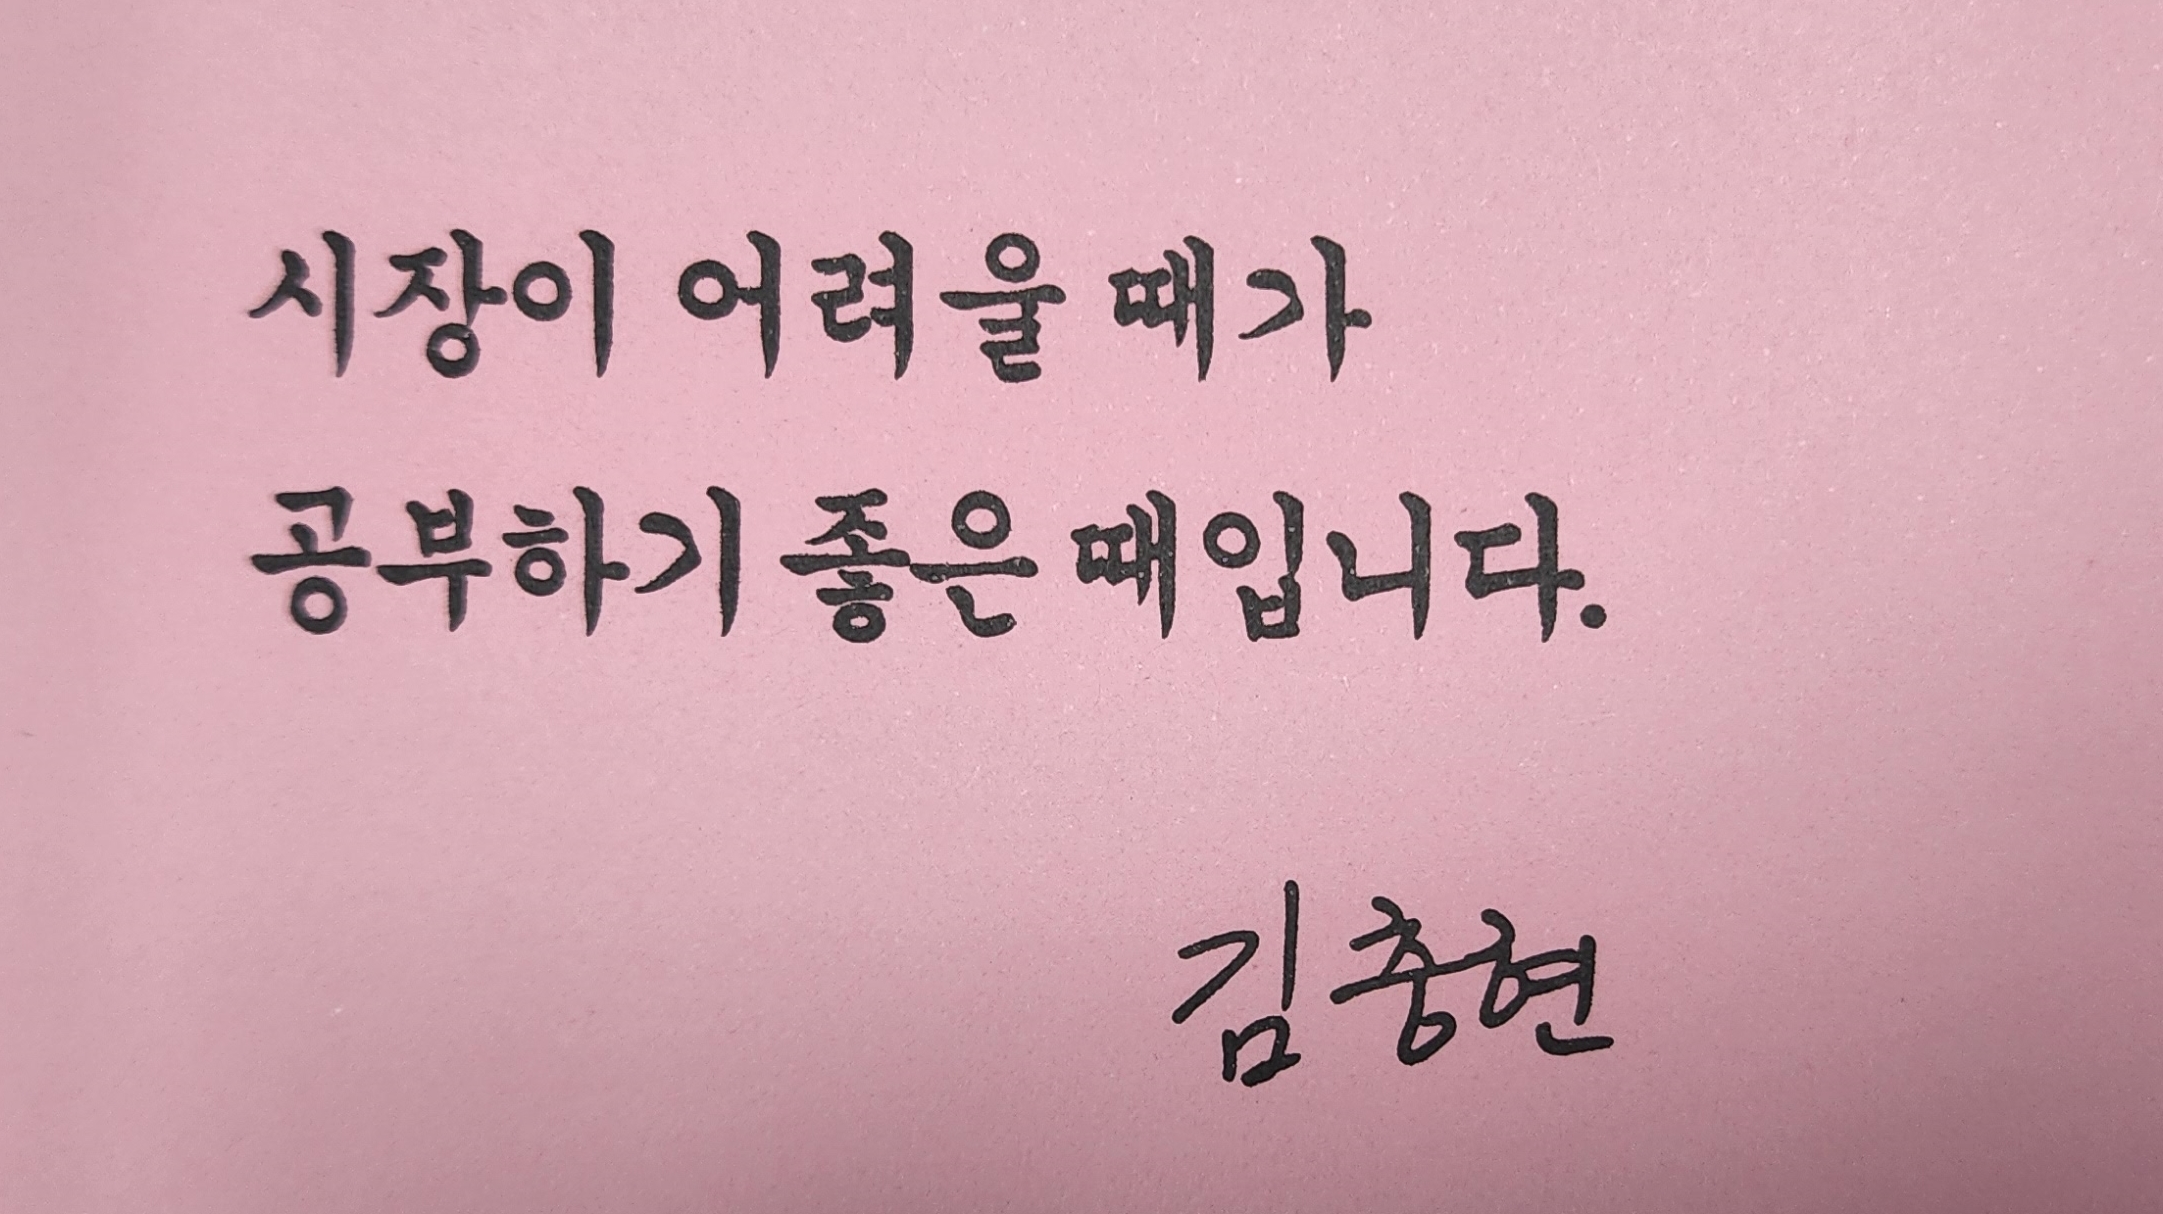 시장이 어려울 때가
공부하기 좋은 때입니다.
김충현